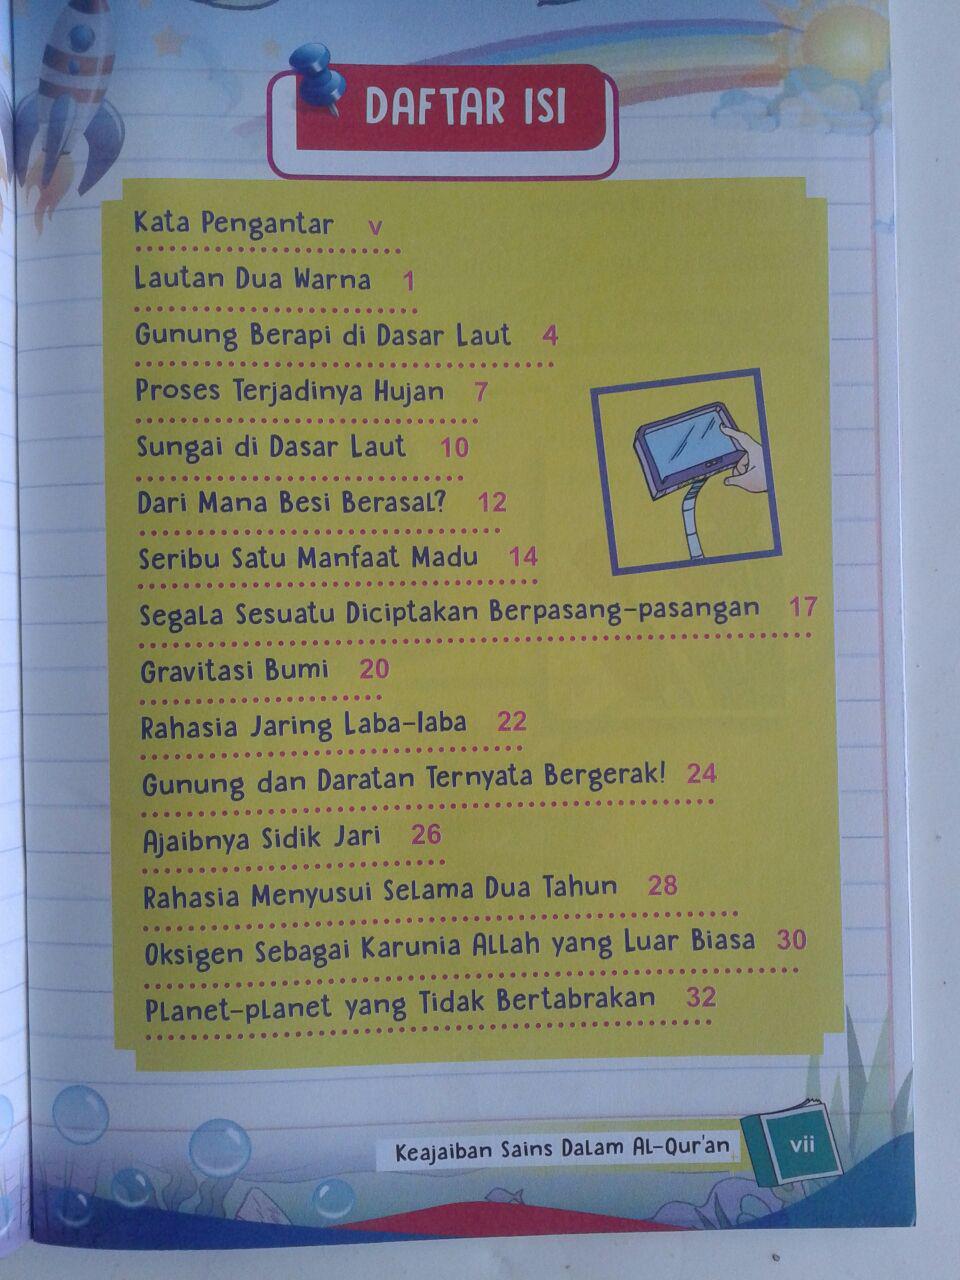 DAFTAR ISI
Kata Pengantar v
Lautan Dua Warna 1
Gunung Berapi di Dasar Laut 4
Proses Terjadinya Hujan 7
Sungai di Dasar Laut 10
Dari Mana Besi Berasal? 12
Seribu Satu Manfaat Madu 14
Segala Sesuatu Diciptakan Berpasang-pasangan 17
Gravitasi Bumi 20
Rahasia Jaring Laba-laba 22
Gunung dan Daratan Ternyata Bergerak! 24
Ajaibnya Sidik Jari 26
Rahasia Menyusui Selama Dua Tahun 28
Oksigen Sebagai Karunia Allah yang Luar Biasa 30
Planet-planet yang Tidak Bertabrakan 32
Keajaiban Sains Dalam Al-Qur'an vii